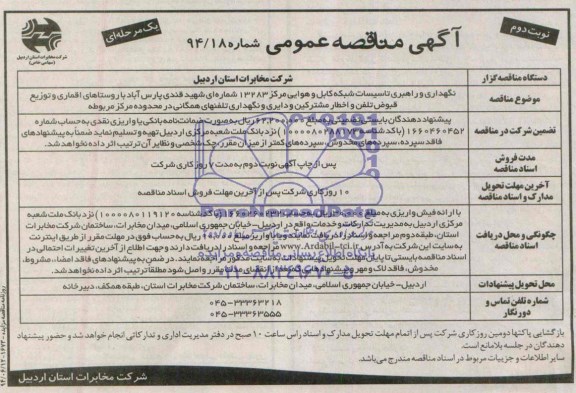 نوبت دوم
آگهی مناقصه عمومی شماره ۹۴/۱۸
یک مرحله‌ای
شرکت مخابرات استان اردبیل
(سهامی خاص)
دستگاه مناقصه گزار
شرکت مخابرات استان اردبیل
موضوع مناقصه
نگهداری و راهبری تاسیسات شبکه کابل و هوایی مرکز ۱۳۲۸۳ شماره‌ای شهید قندی پارس آباد با روستاهای اقماری و توزیع
قبوض تلفن و اخطار مشترکین و دایری و نگهداری تلفنهای همگانی در محدوده مرکز مربوطه
تضمین شرکت در مناقصه
پیشنهاد دهندگان بایستی تضمینی به مبلغ ۶۲,۲۰۰,۰۰۰ ریال به صورت ضمانت‌نامه بانکی یا واریزی نقدی به حساب شماره
۱۶۶۰۴۶۰۴۵۲ نزد بانک ملت شعبه مرکزی اردبیل تهیه و تسلیم نمایند ضمناً به پیشنهادهای
فاقد سپرده، سپرده‌های مخدوش، سپرده‌های کمتر از میزان مقرر، چک شخصی و نظایر آن ترتیب اثر داده نخواهد شد.
مدت فروش
اسناد مناقصه
پس از چاپ آگهی نوبت دوم به مدت ۷ روز کاری شرکت
آخرین مهلت تحویل
مدارک و اسناد مناقصه
۱۰ روز کاری شرکت پس از آخرین مهلت فروش اسناد مناقصه
چگونگی و محل دریافت
اسناد مناقصه
با ارائه فیش واریزی به مبلغ نزد بانک ملت شعبه
مرکزی اردبیل به مدیریت تدارکات و خدمات واقع در اردبیل- خیابان جمهوری اسلامی، میدان مخابرات، ساختمان شرکت مخابرات
استان، طبقه دوم مراجعه و اسناد را دریافت نمایند و یا واریز مبلغ ریال به حساب فوق در مهلت مقرر از طریق اینترنت
به سایت این شرکت به آدرس www.Ardabil-tci.ir مراجعه و اسناد را دریافت دارند و جهت اطلاع از آخرین تغییرات احتمالی در
اسناد مناقصه بایستی تا پایان مهلت تحویل پیشنهادات به سایت مذکور مراجعه نمایند. در ضمن به پیشنهادهای فاقد امضاء، مشروط،
مخدوش، فاقد لاک و مهر و پیشنهادهایی که بعد از انقضای مدت مقرر واصل شود مطلقاً ترتیب اثر داده نخواهد شد.
محل تحویل پیشنهادات
اردبیل- خیابان جمهوری اسلامی، میدان مخابرات، ساختمان شرکت مخابرات استان، طبقه همکف، دبیرخانه
شماره تلفن تماس و
دورنگار
۰۴۵-۳۳۳۶۳۲۱۸
۰۴۵-۳۳۳۶۳۵۵۵
بازگشایی پاکتها دومین روز کاری شرکت پس از اتمام مهلت تحویل مدارک و اسناد راس ساعت ۱۰ صبح در دفتر مدیریت اداری و تدارکاتی انجام خواهد شد و حضور پیشنهاد
دهندگان در جلسه بلامانع است.
سایر اطلاعات و جزییات مربوط در اسناد مناقصه مندرج می‌باشد.
شرکت مخابرات استان اردبیل